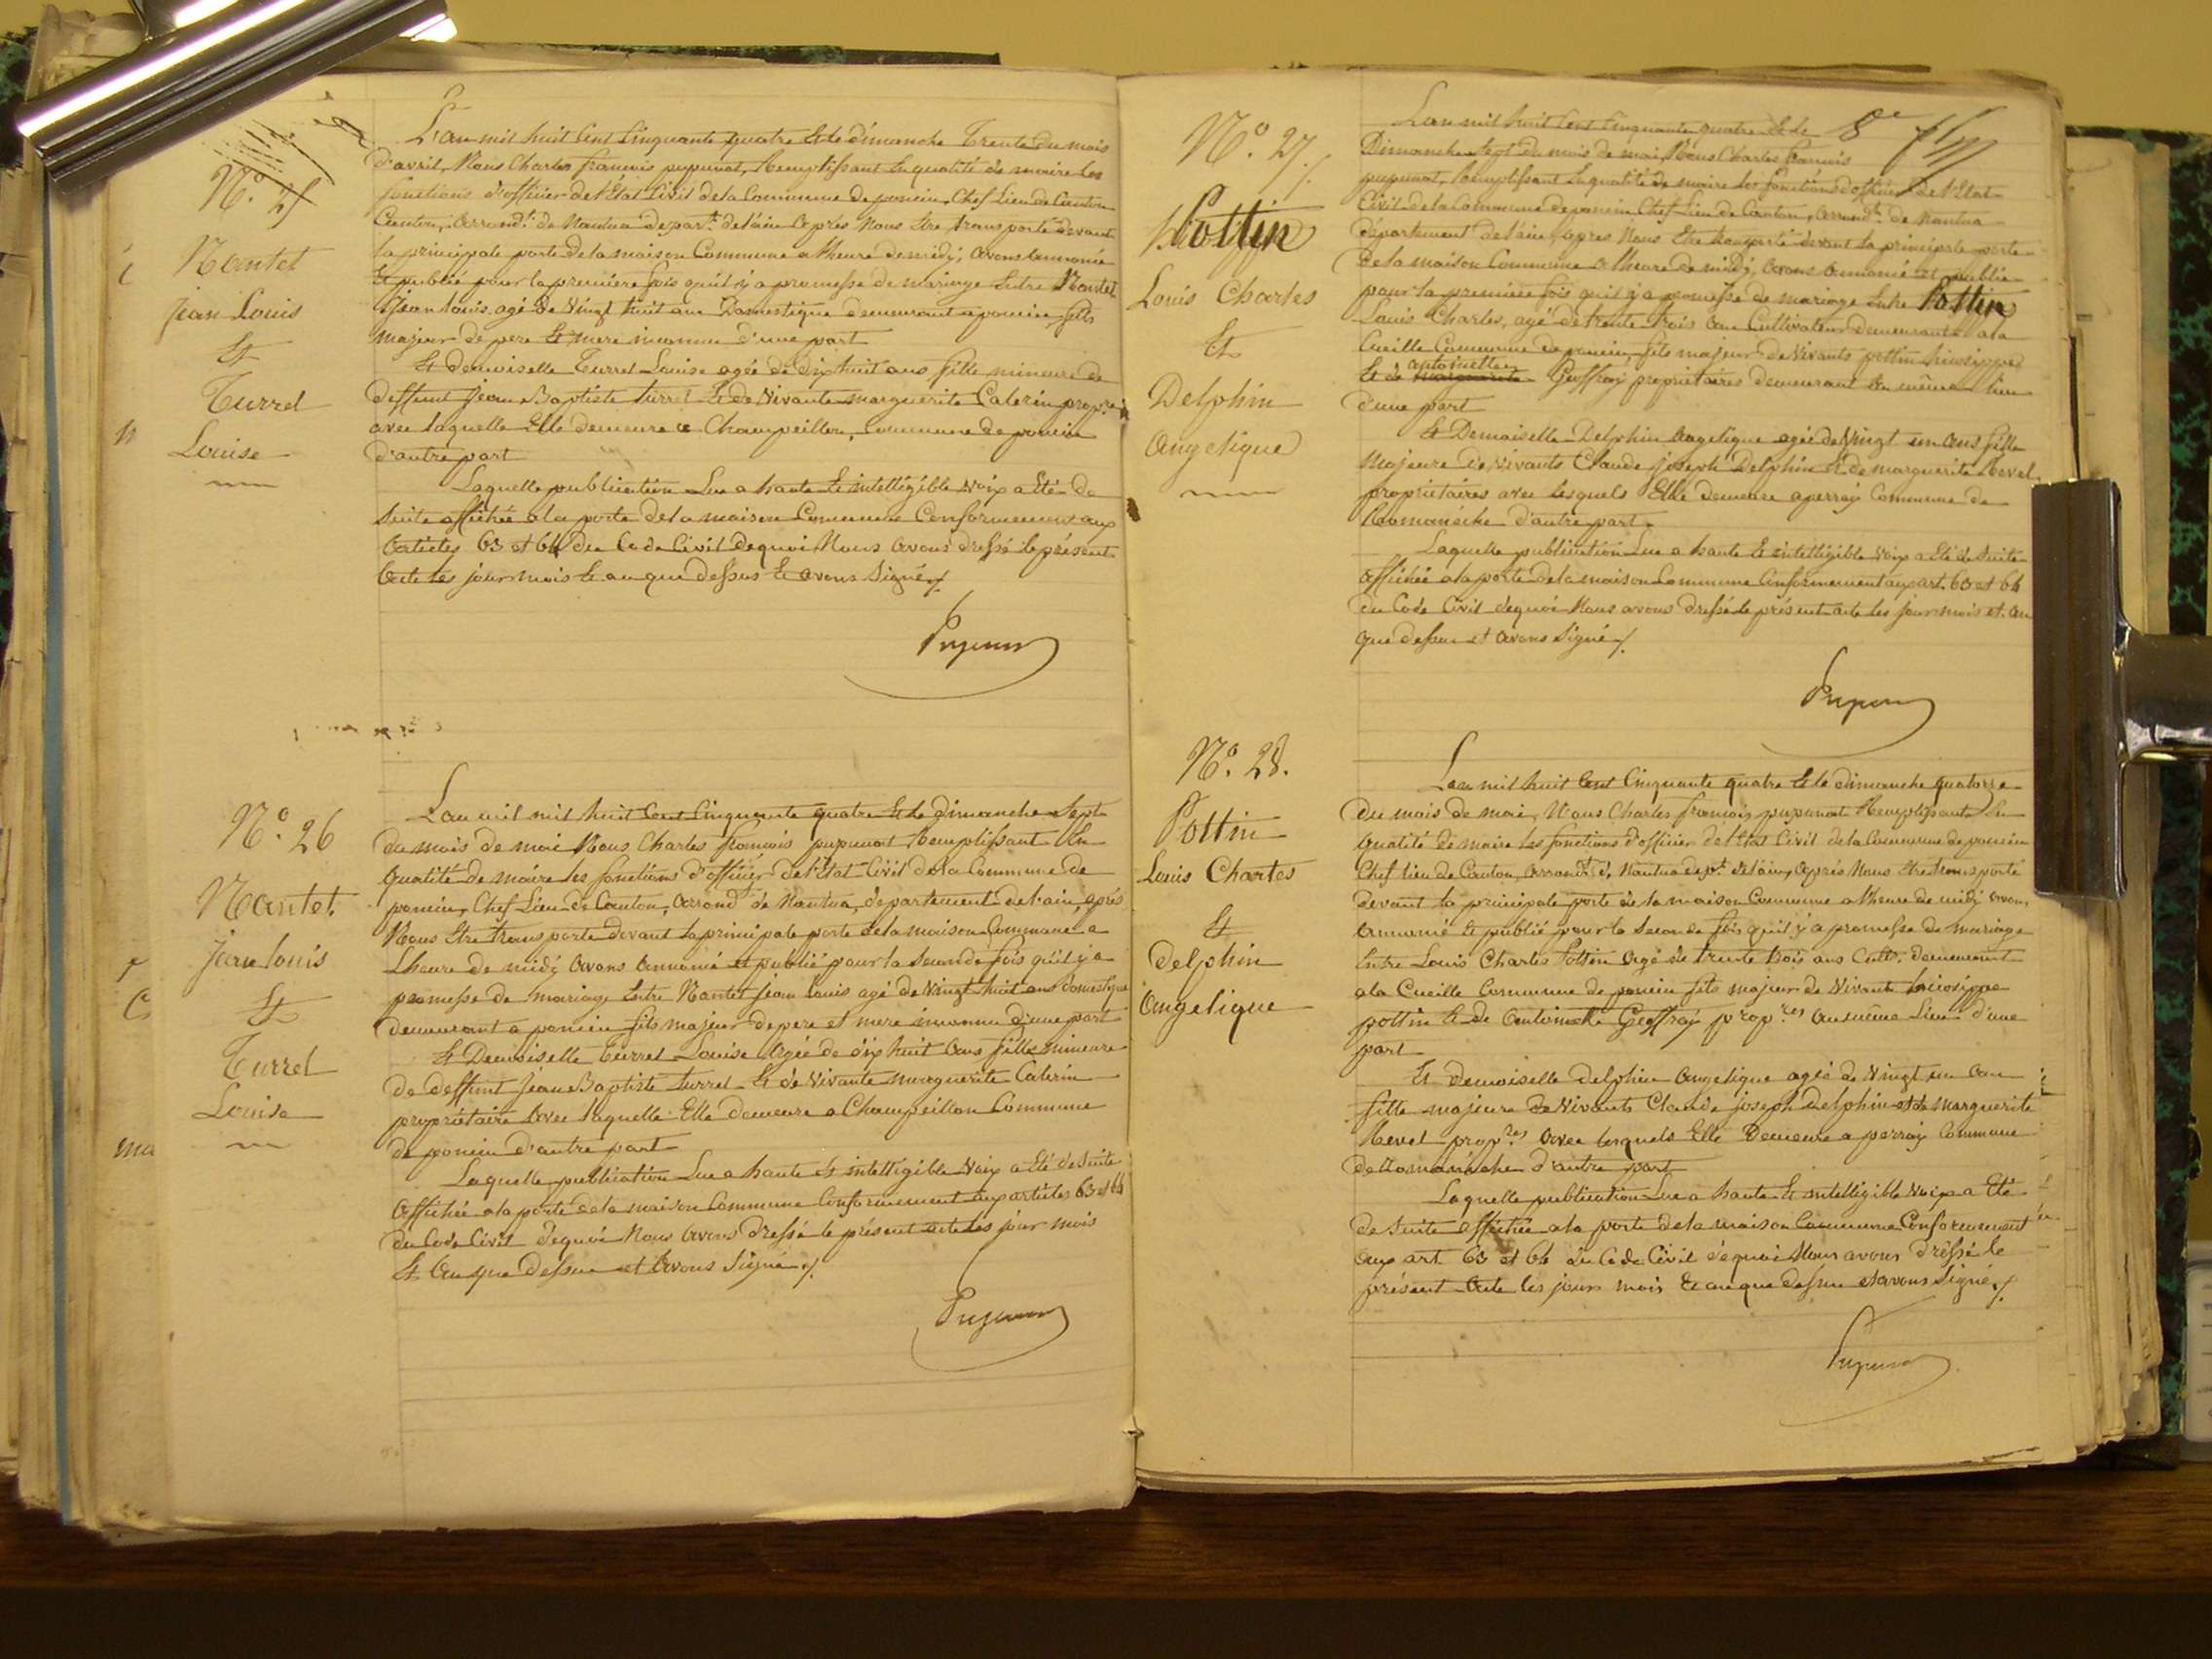 N.° 25
Nantet
jean Louis
Et
Turrel
Louise
L'an mil huit Cent Cinquante quatre Et le dimanche Trente du mois
d'avril, Nous Charles francois pupunat, Remplissant En qualité de maire les
fonctions d'officier de l'Etat Civil de la Commune de poncin, Chef Lieu de Canton
Canton, arrond.t de Nantua depar.t de l'ain après Nous Etre transporté devant
la principale porte de la maison Commune a l'heure de midi, avons annoncé
Et publié pour la premiere fois qu'il y a promesse de mariage Entre Nantet
Jean Louis, agé de Vingt huit ans Domestique demeurant a poncin, fils
majeur de pere Et mere inconnu d'une part
Et demoiselle Turrel Louise agée de dix huit ans fille mineure de
deffunt Jean Baptiste turrel Et de Vivante marguerite Caterin propre
avec laquelle Elle demeure a Champeillon, Commune de poncin
d'autre part
Laquelle publication Lue a haute Et intelligible Voix a Eté de
Suite affichée a la porte de la maison Commune Conformement aux
articles 63 et 64 du Code Civil dequoi Nous avons dressé le présent
acte les jour mois Et an que dessus Et avons Signé
N.° 26
Nantet
jean louis
Et
Turrel
Louise
L'an mil mil huit Cent Cinquante quatre Et le dimanche Sept
du mois de mai Nous Charles francois pupunat Remplissant En
qualité de maire les fonctions d'officier de l'Etat Civil de la Commune de
poncin, Chef Lieu de Canton, arrond.t de Nantua, departement de l'ain, après
Nous Etre transporté devant la principale porte de la maison Commune a
L'heure de midi avons annoncé et publié pour la seconde fois qu'il y a
promesse de mariage Entre Nantet jean louis agé de Vingt huit ans domestique
demeurant a poncin fils majeur de pere et mere inconnu d'une part
Et Demoiselle Turrel Louise Agée de dix huit ans fille mineure
de deffunt Jean Baptiste turrel Et de Vivante marguerite Caterin
propriétaire avec laquelle Elle demeure a Champeillon Commune
de poncin d'autre part
Laquelle publication Lue a haute Et intelligible Voix a Eté de Suite
affichée a la porte de la maison Commune Conformement aux articles 63 et 64
du Code Civil dequoi Nous avons dressé le présent acte les jour mois
Et an que dessus et avons Signé
N.° 27
Pottin
Louis Charles
Et
Delphin
Angelique
8e
L'an mil huit Cent Cinquante quatre Et le
Dimanche Sept du mois de mai, Nous Charles francois
pupunat, Remplissant En qualité de maire les fonctions d'officier de l'Etat
Civil de la Commune de poncin Chef Lieu de Canton, arrond.t de Nantua
département de l'ain, après Nous Etre transporté devant la principale porte
de la maison Commune a l'heure de midi, avons annoncé et publié
pour la premiere fois qu'il y a promesse de mariage Entre Pottin
Louis Charles, agé de trente trois ans Cultivateur demeurant a la
Cueille Commune de poncin, fils majeur de Vivants pottin
antoinette
Et de Geoffray propriétaires demeurant au même lieu
d'une part
Et Demoiselle Delphin angelique agée de Vingt un ans fille
Majeure de Vivants Claude joseph Delphin Et de marguerite Revel
propriétaires avec lesquels Elle demeure a perray Commune de
Romanèche d'autre part
Laquelle publication Lue a haute Et intelligible Voix a Eté de Suite
affichée a la porte de la maison Commune Conformement aux art. 63 et 64
du Code Civil dequoi Nous avons dressé le présent acte les jour mois et an
que dessus et avons Signé
N.° 28.
Pottin
Louis Charles
Et
Delphin
Angelique
L'an mil huit Cent Cinquante quatre Et le dimanche quatorze
du mois de mai, Nous Charles francois pupunat Remplissant En
qualité de maire les fonctions d'officier de l'Etat Civil de la Commune de poncin
Chef lieu de Canton, arrond.t de Nantua dep.t de l'ain, après Nous Etre transporté
devant la principale porte de la maison Commune a l'heure de midi avons
annoncé Et publié pour la seconde fois qu'il y a promesse de mariage
Entre Louis Charles Pottin Agé de trente trois ans Cult.r demeurant
a la Cueille Commune de poncin fils majeur de Vivant
pottin Et de antoinette Geoffray prop.res au même Lieu d'une
part
Et demoiselle Delphin angelique agée de Vingt un ans
fille majeure de Vivants Claude joseph Delphin et de Marguerite
Revel prop.res avec lesquels Elle Demeure a perray Commune
de Romanèche d'autre part
Laquelle publication Lue a haute Et intelligible Voix a Eté
de Suite affichée a la porte de la maison Commune Conformement
aux art. 63 et 64 du Code Civil dequoi Nous avons dressé le
présent acte les jour mois Et an que dessus et avons Signé